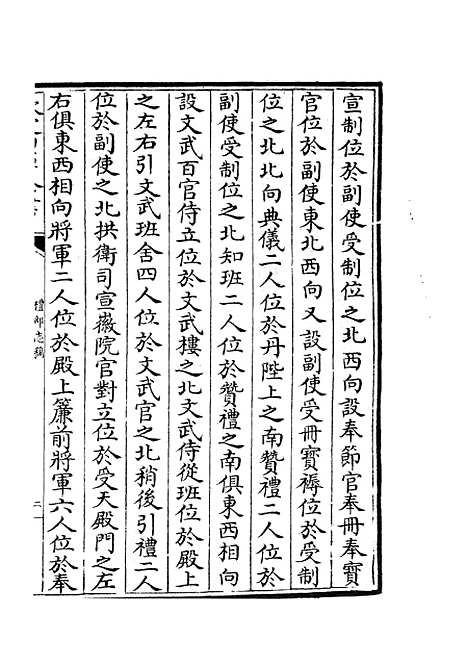 宣制位於副使受制位之北西向設奉節官奉冊奉寳
官位於副使東北西向又設副使受冊寳褥位於受制
位之北北向典儀二人位於丹陛上之南贊禮二人位於
副使受制位之北知班二人位於贊禮之南俱東西相向
設文武百官侍立位於文武樓之北文武侍從班位於殿上
之左右引文武班舍四人位於文武官之北稍後引禮二人
位於副使之北拱衛司宣徽院官對立位於受天殿門之左
右俱東西相向將軍二人位於殿上簾前將軍六人位於奉
禮部志稿